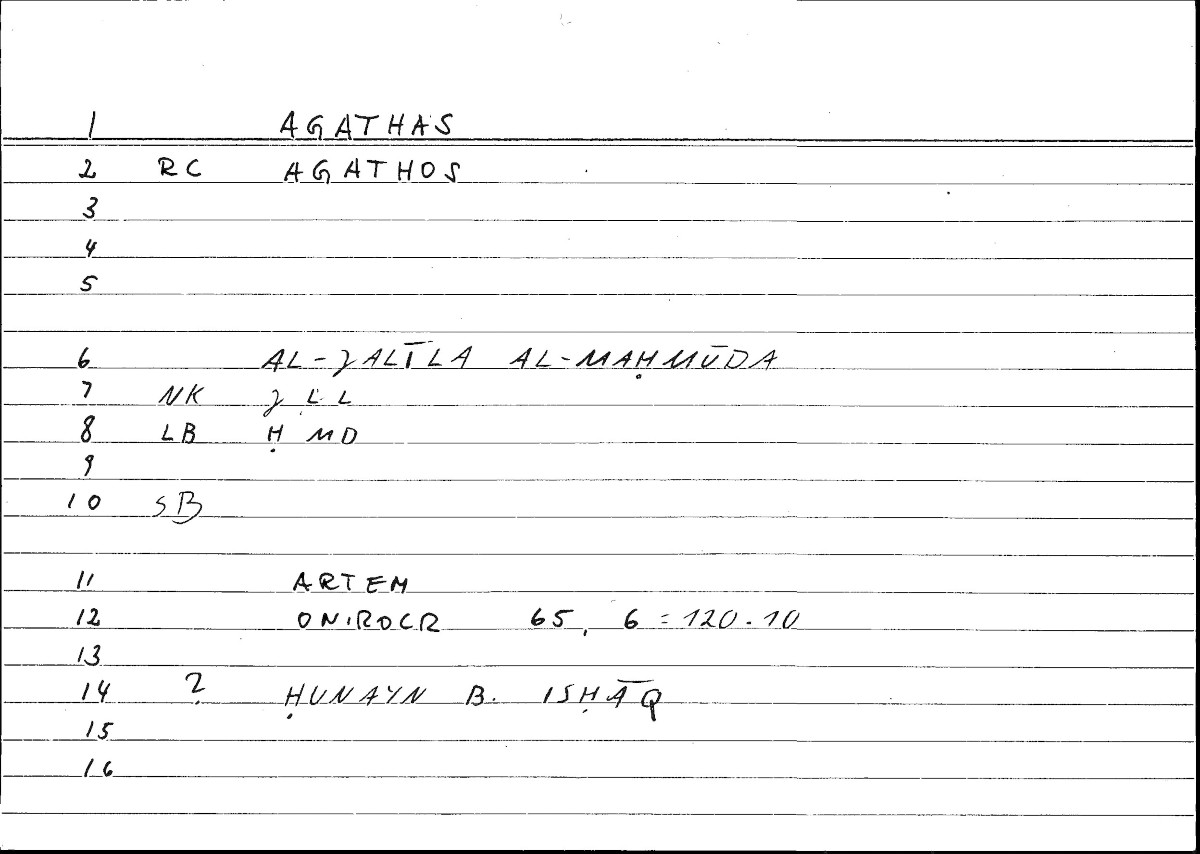 1 AGATHAS
2 RC AGATHOS
3
4
5
6 AL-JALĪLA AL-MAḤMŪDA
7 NK J L L
8 LB Ḥ MD
9
10 SB
11 ARTEM
12 ONIROCR 65, 6 = 120.10
13
14 ? ḤUNAYN B. ISḤĀQ
15
16